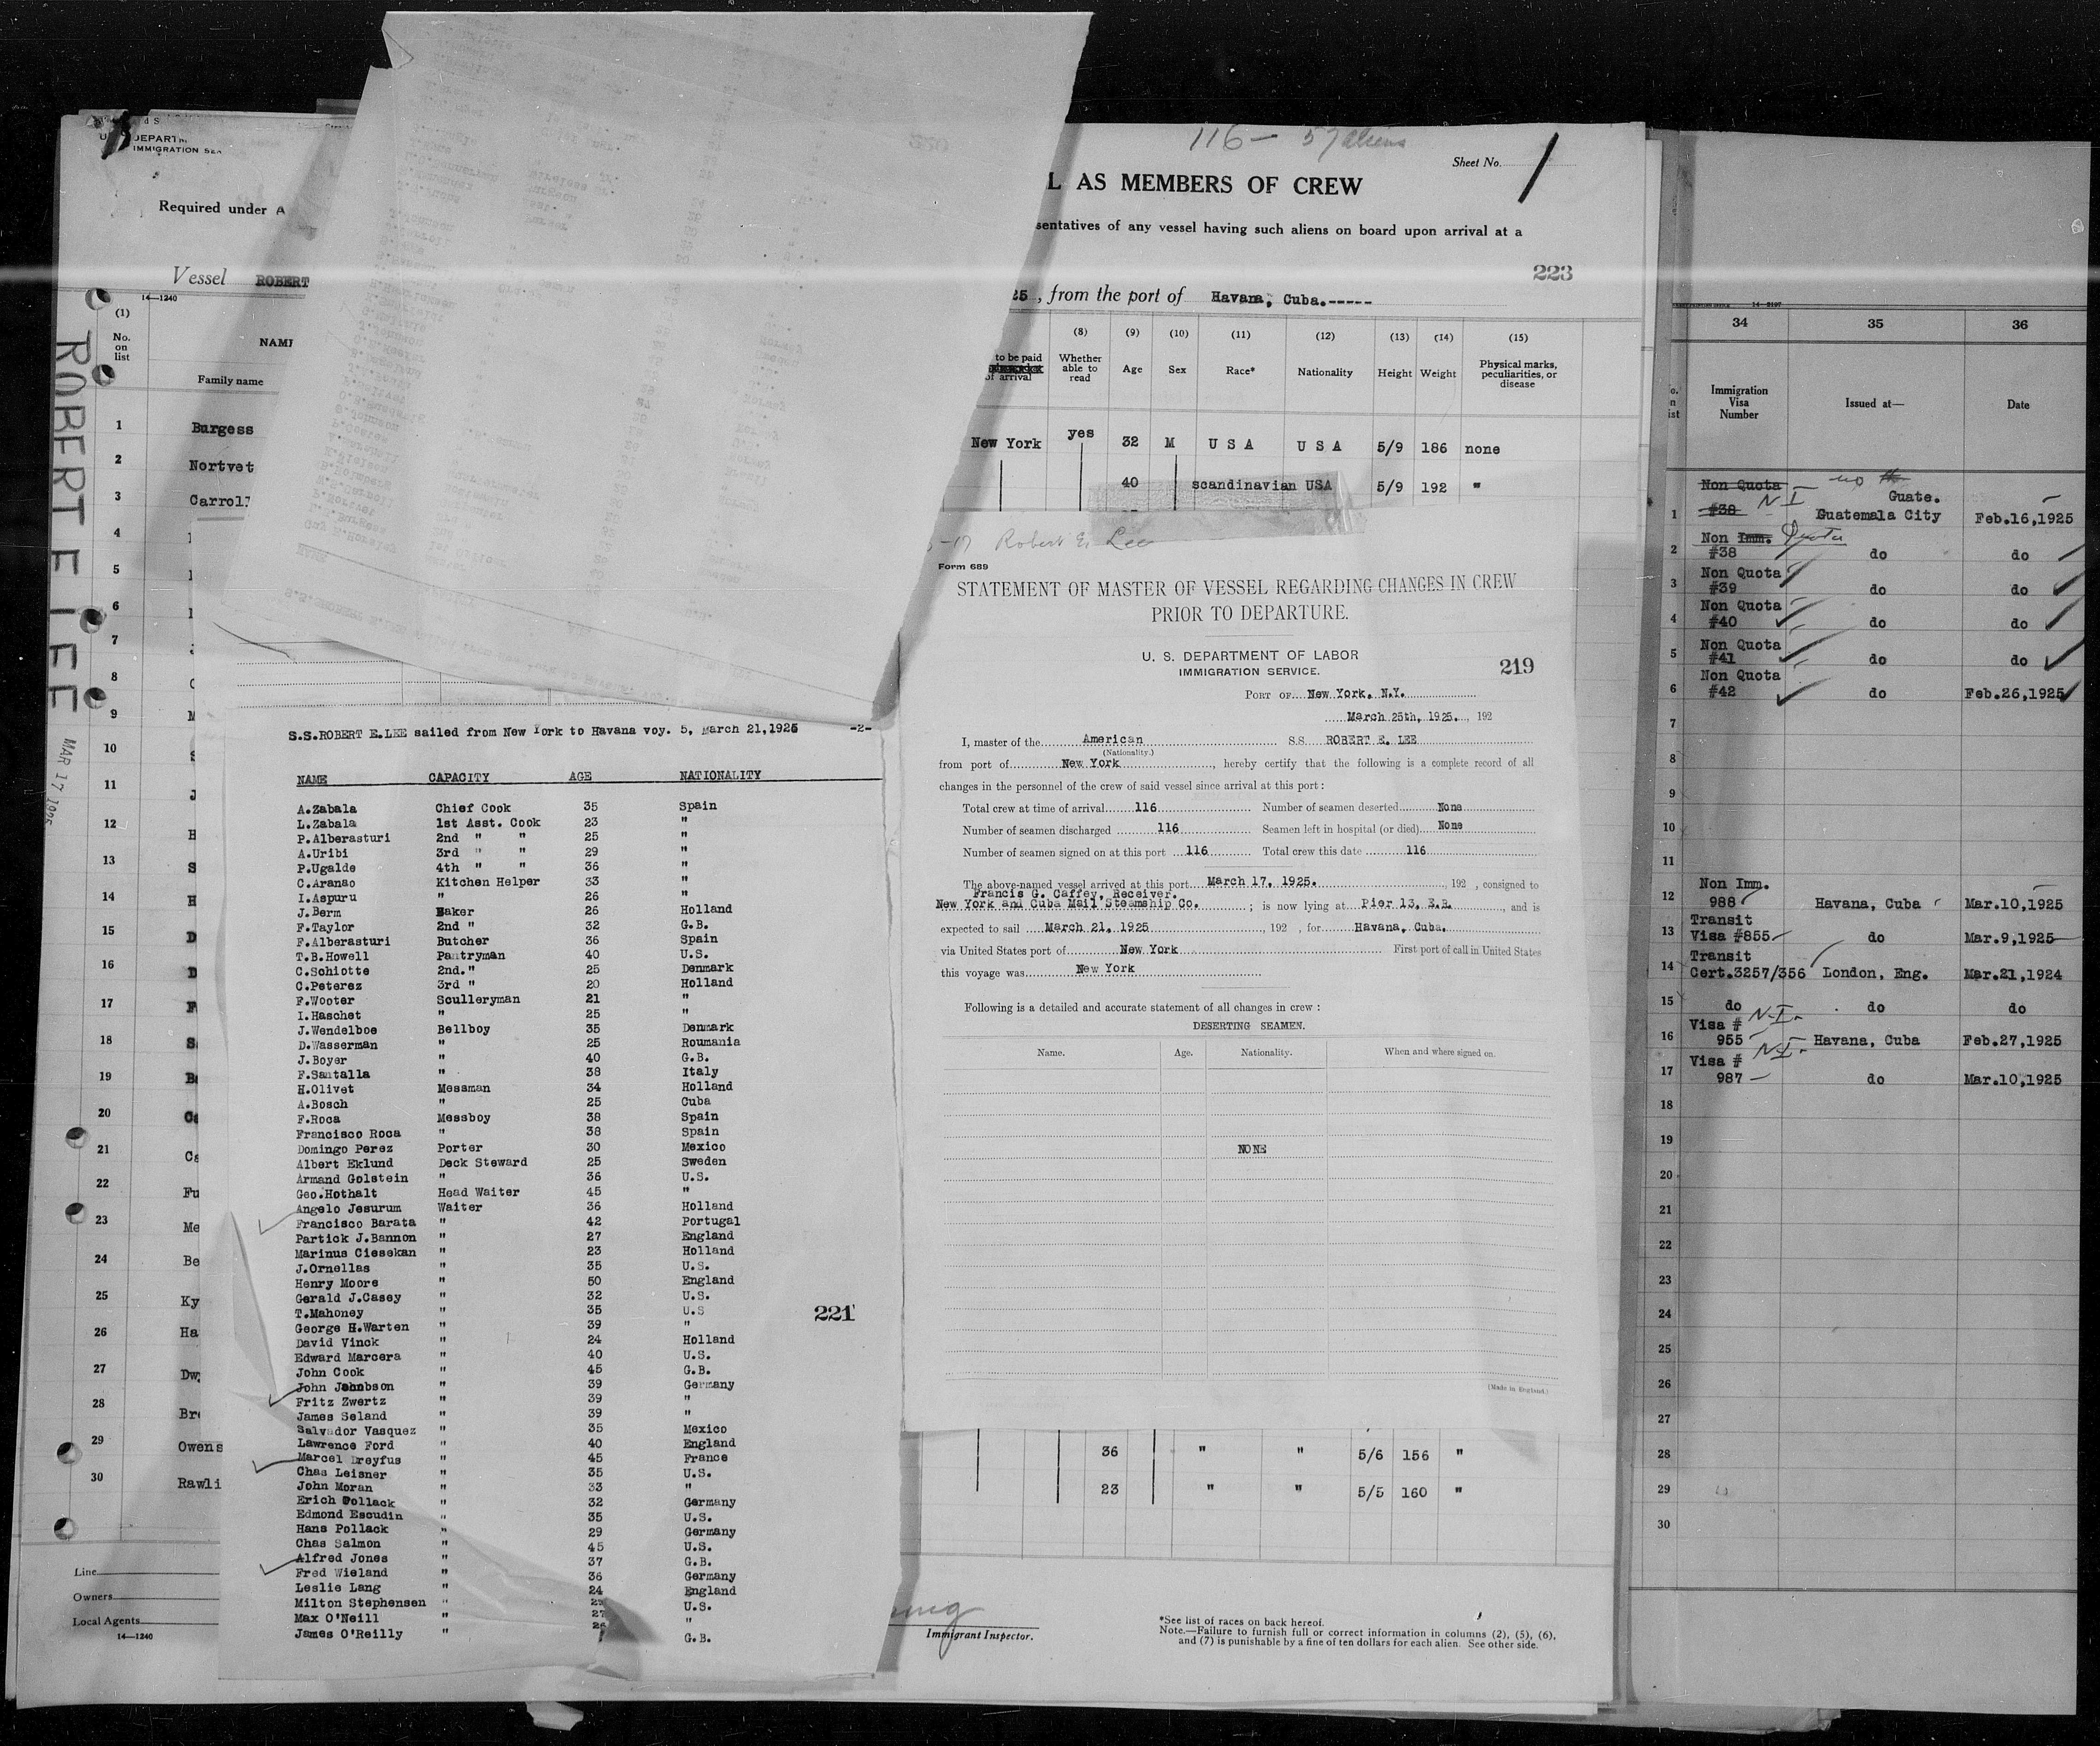 116 - 57 aliens
Sheet No. 1
L AS MEMBERS OF CREW
IMMIGRATION
Required under A
sentatives of any vessel having such aliens on board upon arrival at a
223
Vessel ROBERT
25, from the port of Havana, Cuba.-----
14—1240
(1)
No. on list
NAM
Family name
to be paid
of arrival
(8)
Whether able to read
(9)
Age
(10)
Sex
(11)
Race*
(12)
Nationality
(13)
Height
(14)
Weight
(15)
Physical marks, peculiarities, or disease
New York yes 32 M U S A U S A 5/9 186 none
40 scandinavian USA 5/9 192 "
1 Burgess
2 Nortvet
3 Carrol
4
5
6
7
8
9
10
11
12
13
14
15
16
17
18
19
20
21
22 Fu
23 Me
24 Be
25 Ky
26 Ha
27 Dw
28 Br
29 Owens
30 Rawli
Line
Owners
Local Agents
14—1240
ROBERT E LEE
MAR 17 1925
S.S.ROBERT E.LEE sailed from New York to Havana voy. 5, March 21,1925 -2-
NAME CAPACITY AGE NATIONALITY
A.Zabala Chief Cook 35 Spain
L.Zabala 1st Asst. Cook 23 "
P.Alberasturi 2nd " " 25 "
A.Uribi 3rd " " 29 "
P.Ugalde 4th " " 36 "
C.Aranao Kitchen Helper 33 "
I.Aspuru " 26 "
J.Berm Baker 26 Holland
F.Taylor 2nd " 32 G.B.
F.Alberasturi Butcher 36 Spain
T.B.Howell Pantryman 40 U.S.
C.Schiotte 2nd." 25 Denmark
C.Peterez 3rd " 20 Holland
F.Wooter Sculleryman 21 "
I.Haschet " 25 "
J.Wendelboe Bellboy 35 Denmark
D.Wasserman " 25 Roumania
J.Boyer " 40 G.B.
F.Santalla " 38 Italy
H.Olivet Messman 34 Holland
A.Bosch " 25 Cuba
F.Roca Messboy 38 Spain
Francisco Roca " 38 Spain
Domingo Perez Porter 30 Mexico
Albert Eklund Deck Steward 25 Sweden
Armand Golstein " 36 U.S.
Geo.Hothalt Head Waiter 45 "
Angelo Jesurum Waiter 36 Holland
Francisco Barata " 42 Portugal
Partick J.Bannon " 27 England
Marinus Ciesekan " 23 Holland
J.Ornellas " 35 U.S.
Henry Moore " 50 England
Gerald J.Casey " 32 U.S.
T.Mahoney " 35 U.S
George H.Warten " 39 "
David Vinck " 24 Holland
Edward Marcera " 40 U.S.
John Cook " 45 G.B.
John " 39 Germany
Fritz Zwertz " 39 "
James Seland " 39 "
Salvador Vasquez " 35 Mexico
Lawrence Ford " 40 England
Marcel Dreyfus " 45 France
Chas Leisner " 35 U.S.
John Moran " 33 "
Erich Pollack " 32 Germany
Edmond Escudin " 35 U.S.
Hans Pollack " 29 Germany
Chas Salmon " 45 U.S.
Alfred Jones " 37 G.B.
Fred Wieland " 36 Germany
Leslie Lang " 24 England
Milton Stephensen " U.S.
Max O'Neill " "
James O'Reilly " G.B.
221
Robert E. Lee
Form 689
STATEMENT OF MASTER OF VESSEL REGARDING CHANGES IN CREW
PRIOR TO DEPARTURE.
U. S. DEPARTMENT OF LABOR
IMMIGRATION SERVICE.
219
PORT OF New York, N.Y.
March 25th, 1925., 192
I, master of the American S.S. ROBERT E. LEE
(Nationality.)
from port of New York, hereby certify that the following is a complete record of all
changes in the personnel of the crew of said vessel since arrival at this port:
Total crew at time of arrival 116 Number of seamen deserted None
Number of seamen discharged 116 Seamen left in hospital (or died) None
Number of seamen signed on at this port 116 Total crew this date 116
The above-named vessel arrived at this port March 17, 1925., 192 , consigned to
Francis G. Caffey, Receiver.
New York and Cuba Mail Steamship Co. ; is now lying at Pier 13, E.R., and is
expected to sail March 21, 1925, 192 , for Havana, Cuba.
via United States port of New York First port of call in United States
this voyage was New York
Following is a detailed and accurate statement of all changes in crew:
DESERTING SEAMEN.
Name. Age. Nationality. When and where signed on.
NONE
(Made in England.)
36 " " 5/6 156 "
23 " " 5/5 160 "
Immigrant Inspector.
*See list of races on back hereof.
Note.—Failure to furnish full or correct information in columns (2), (5), (6),
and (7) is punishable by a fine of ten dollars for each alien. See other side.
34 35 36
Immigration Visa Number Issued at— Date
1 Non Quota #38 N-I Guate. Guatemala City Feb.16,1925
2 Non Imm. Quota #38 do do
3 Non Quota #39 do do
4 Non Quota #40 do do
5 Non Quota #41 do do
6 Non Quota #42 do Feb.26,1925
7
8
9
10
11
12 Non Imm. 988 Havana, Cuba Mar.10,1925
13 Transit Visa #855 do Mar.9,1925
14 Transit Cert.3257/356 London, Eng. Mar.21,1924
15 do do do
16 Visa # 955 N-I- Havana, Cuba Feb.27,1925
17 Visa # 987 N-I- do Mar.10,1925
18
19
20
21
22
23
24
25
26
27
28
29
30